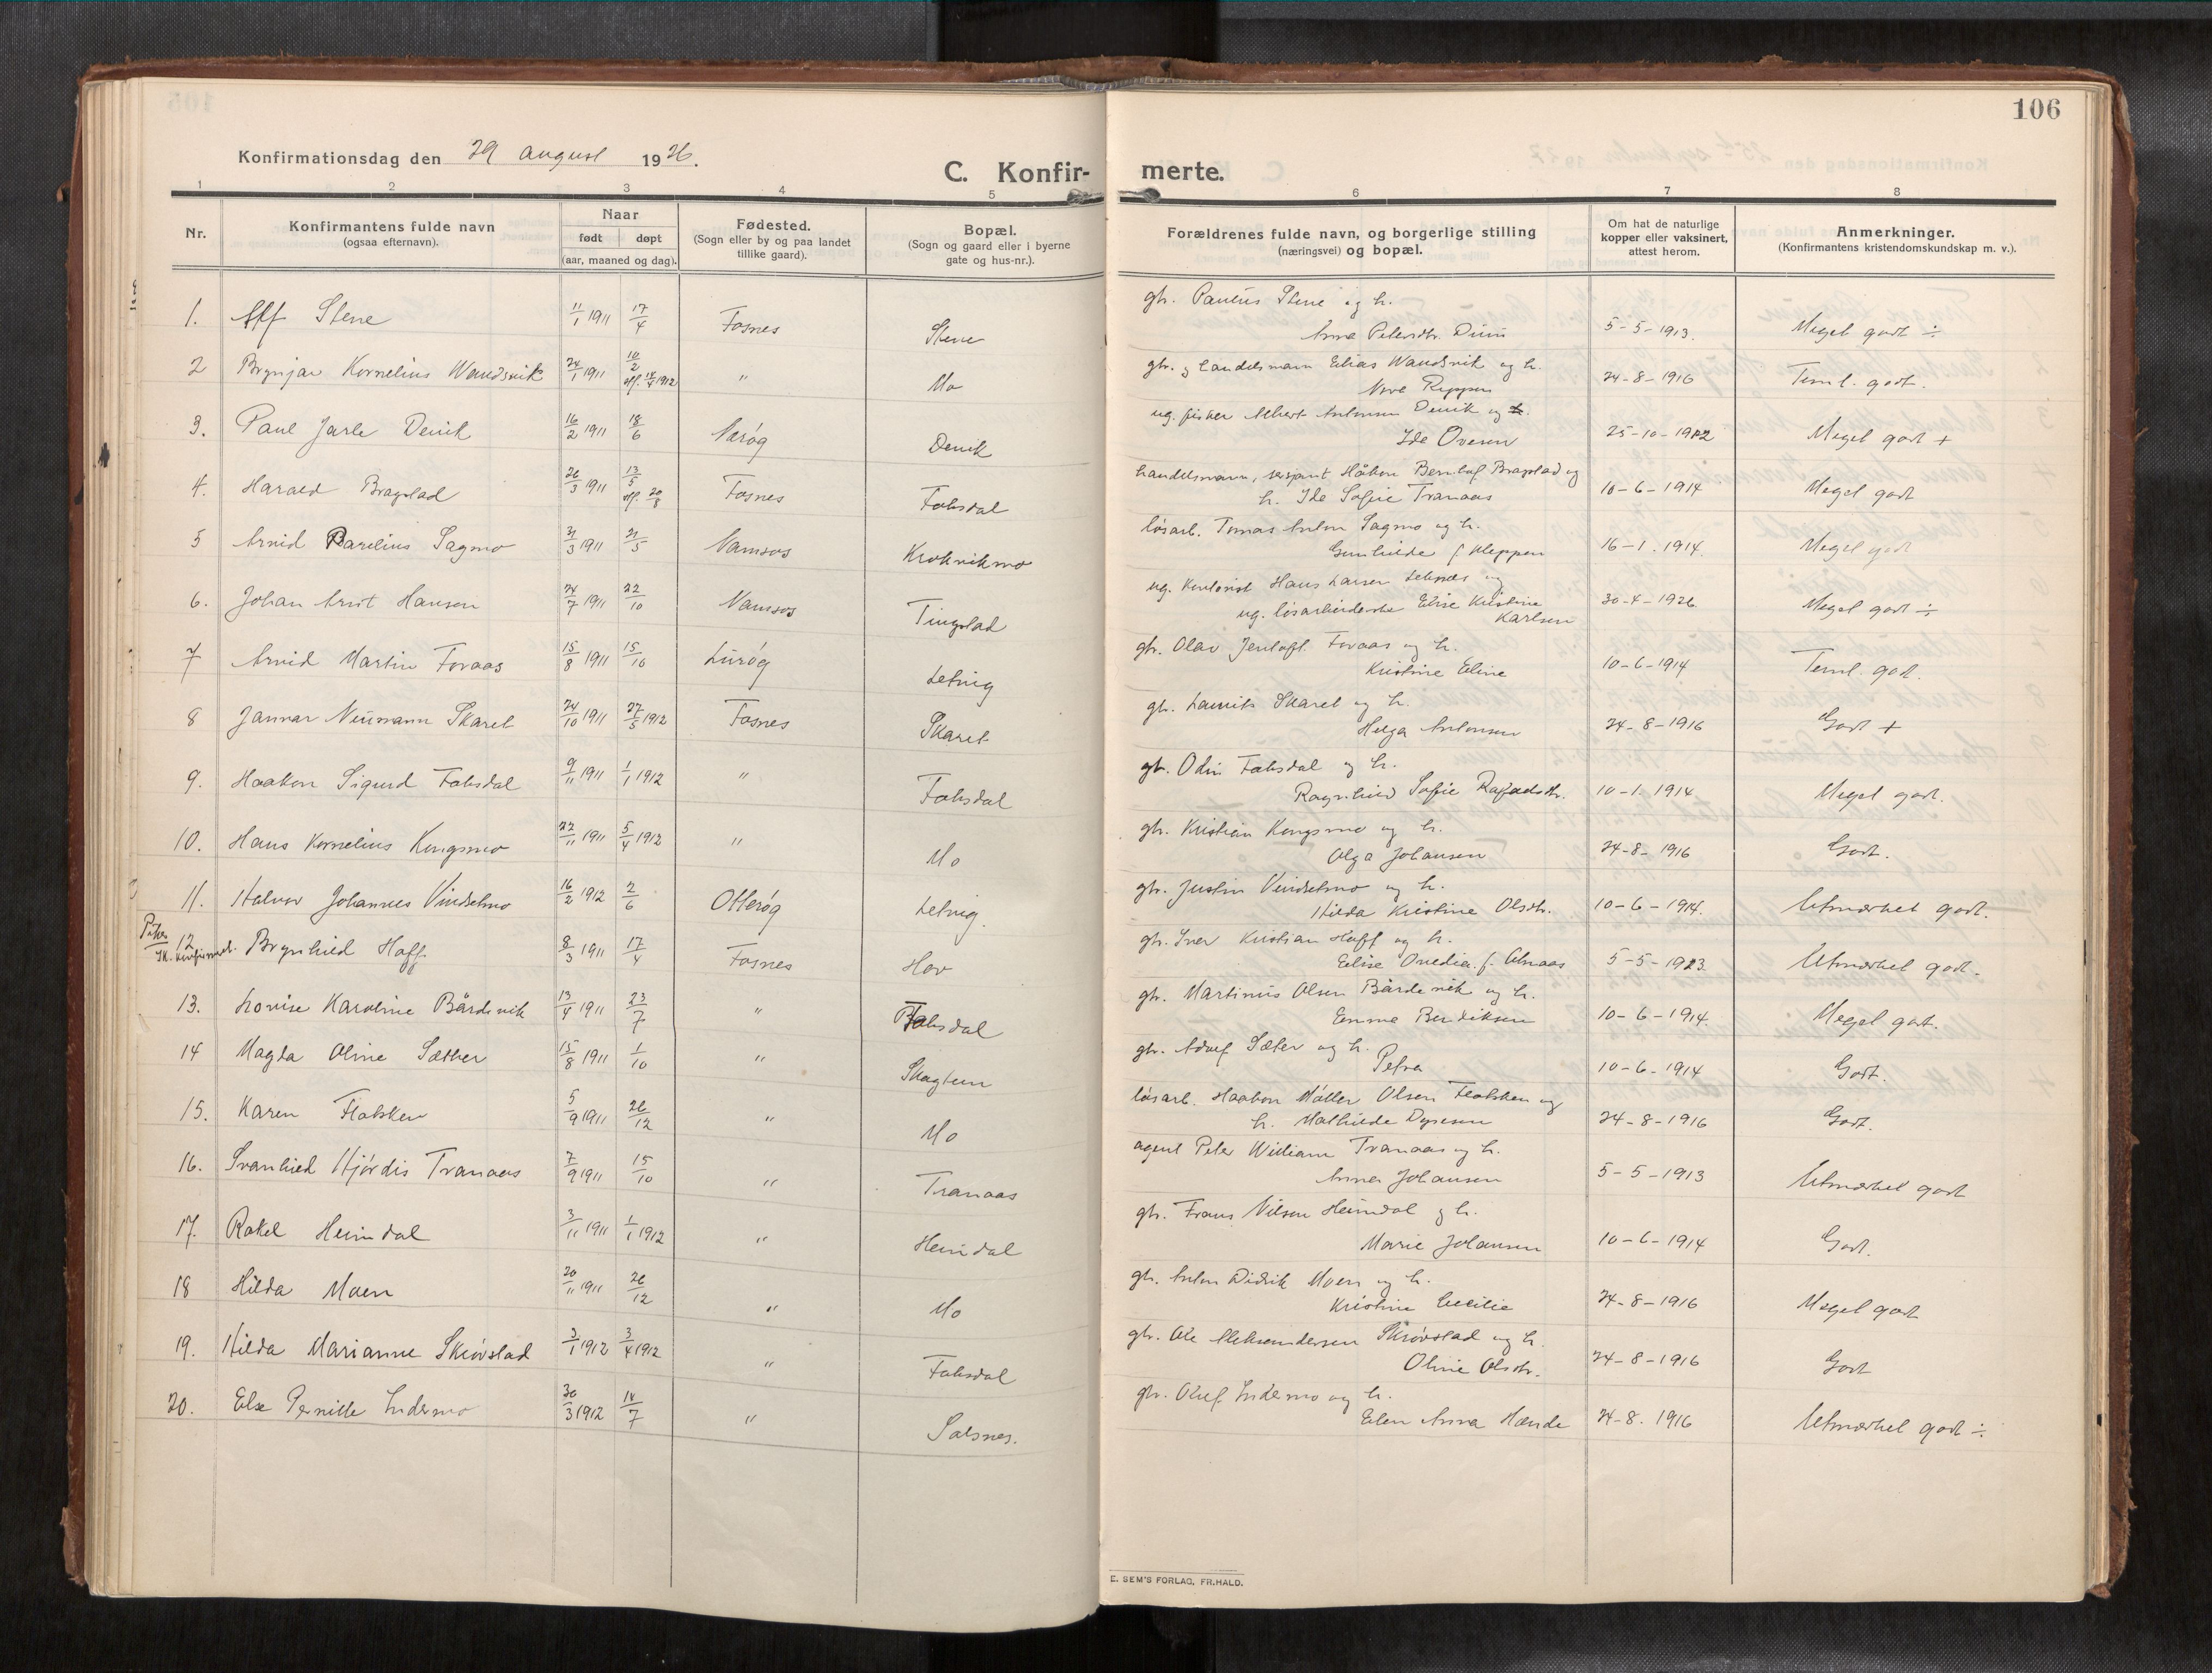 106
Konfirmationsdag den 29 august 1926.
C. Konfir-
merte.
1 2 3 4 5 6 7 8
Nr.
Konfirmantens fulde navn
(ogsaa efternavn).
Naar
født døpt
(aar, maaned og dag).
Fødested.
(Sogn eller by og paa landet
tillike gaard).
Bopæl.
(Sogn og gaard eller i byerne
gate og hus-nr.).
Forældrenes fulde navn, og borgerlige stilling
(næringsvei) og bopæl.
Om hat de naturlige
kopper eller vaksinert,
attest herom.
Anmerkninger.
(Konfirmantens kristendomskundskap m. v.).
1. Alf Stene 11/1 1911 17/4 Fosnes Stene gbr. Paulus Stene og h.
Anna Petersdtr. Duun 5-5-1913. Meget godt ÷
2 Brynjar Kornelius Wandsvik 24/1 1911 10/2 " Mo gbr. og handelsmann Elias Wandsvik og h.
24-8-1916 Teml. godt.
3. Paul Jarle Devik 16/2 1911 18/6 Nærøy Devik ug. fisker Albert Antonsen Devik og
Ide Ovesen 25-10-1912 Meget godt +
4. Harald Bragstad 26/3 1911 13/5 Fosnes Faksdal handelsmann, sersjant Håkon Bernhof Bragstad og
h. Ide Sofie Tranaas 10-6-1914 Meget godt
5 Arvid Parelius Sagmo 31/3 1911 21/5 Namsos Krokvikmo løsarb. Tomas Anton Sagmo og h.
Gunhilde f. Kleppen 16-1-1914. Meget godt
6. Johan Arnt Hansen 24/7 1911 22/10 Namsos Tingstad ug. kontorist Hans Larsen Leknes og
ug. løsarbeiderske Elise Kristine
Karlsen 30-4-1926 Meget godt ÷
7 Arvid Martin Foraas 15/8 1911 15/10 Lurøy Letnig gbr. Olav Jentoft Foraas og h.
Kristine Eline 10-6-1914 Teml. godt.
8 Jannar Neumann Skaret 24/10 1911 27/5 1912 Fosnes Skaret gbr. Laurits Skaret og h.
Helga Antonsen 24-8-1916 Godt +
9. Haakon Sigurd Faksdal 9/11 1911 1/1 1912 " Faksdal gbr. Odin Faksdal og h.
Ragnhild Sofie 10-1-1914 Meget godt.
10. Hans Kornelius Kongsmo 22/11 1911 5/4 1912 " Mo gbr. Kristian Kongsmo og h.
Olga Johansen 24-8-1916 Godt.
11. Halvor Johannes Vindsetmo 16/2 1912 2/6 Otterøy Letnig. gbr. Justin Vindsetmo og h.
Hilda Kristine Olsdtr. 10-6-1914. Utmærket godt.
Piker
12 Brynhild Hoff 8/3 1911 17/4 Fosnes Hov gbr. Iver Kristian Hoff og h.
Elise Ovedia f. Almaas 5-5-1923 Utmærket godt.
13. Lovise Karoline Bårdsvik 13/4 1911 23/7 " Faksdal gbr. Martinus Olsen Bårdsvik og h.
Emma Bendiksen 10-6-1914. Meget godt.
14 Magda Oline Sæther 15/8 1911 1/10 " Skagtun gbr. Adolf Sæter og h.
Petra 10-6-1914 Godt.
15. Karen Flotsken 5/9 1911 26/12 " Mo løsarb. Haakon Møller Olsen Flotsken og
h. Mathilde Dyresen 24-8-1916 Godt.
16. Svanhild Hjørdis Tranaas 7/9 1911 15/10 " Tranaas agent Peter William Tranaas og h.
Anna Johansen 5-5-1913 Utmærket godt
17. Rakel Heimdal 3/11 1911 1/1 1912 " Heimdal gbr. Frans Nilsen Heimdal og h.
Marie Johansen 10-6-1914 Godt.
18 Hilda Moen 20/11 1911 26/12 " Mo gbr. Anton Didrik Moen og h.
Kristine Cecilie 24-8-1916 Meget godt
19. Hilda Marianne Skrøvstad 3/1 1912 3/4 1912 " Faksdal gbr. Ole Aleksandersen Skrøvstad og h.
Oline Olsdtr. 24-8-1916 Godt
20. Else Pernille Indermo 30/3 1912 14/7 " Salsnes. gbr. Oluf Indermo og h.
Elen Anna Hænde 24-8-1916 Utmærket godt ÷
E. SEM'S FORLAG, FR.HALD.